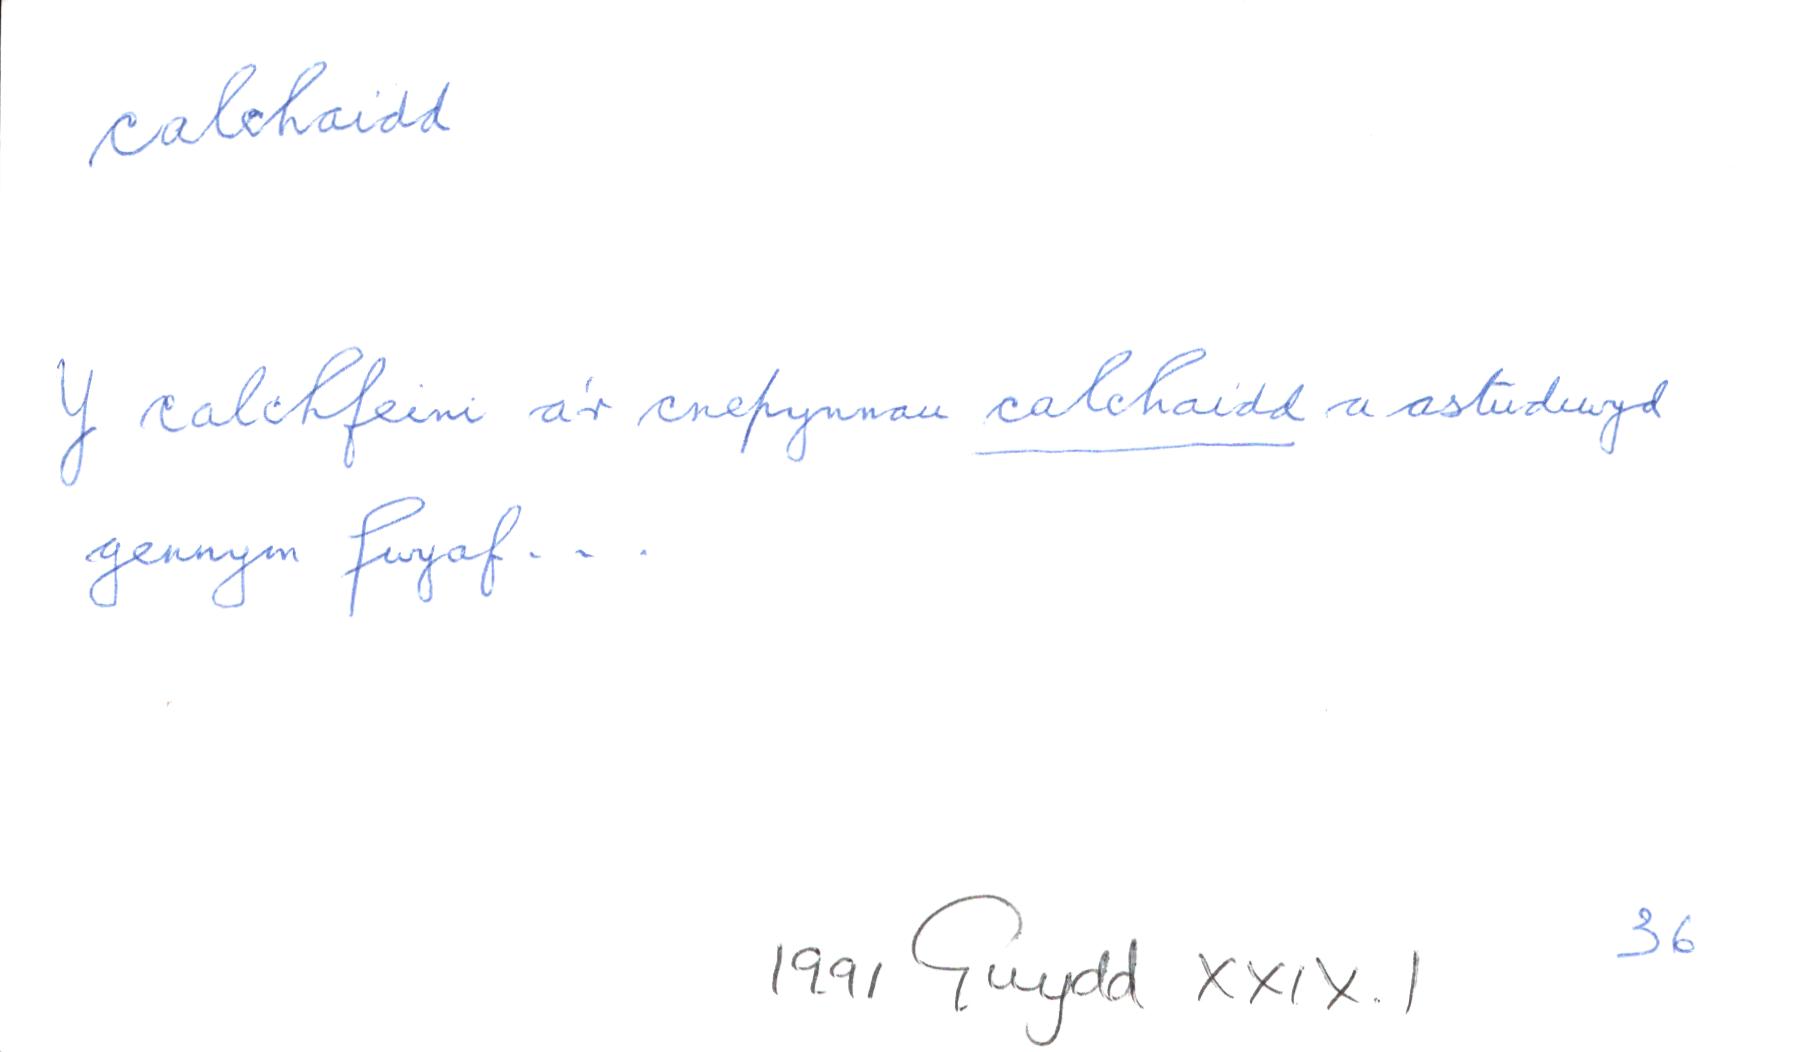 calchaidd
Y calchfeini a'r cnepynnau calchaidd a astudiwyd
gennym fwyaf...
36
1991 Gwydd XXIX.1